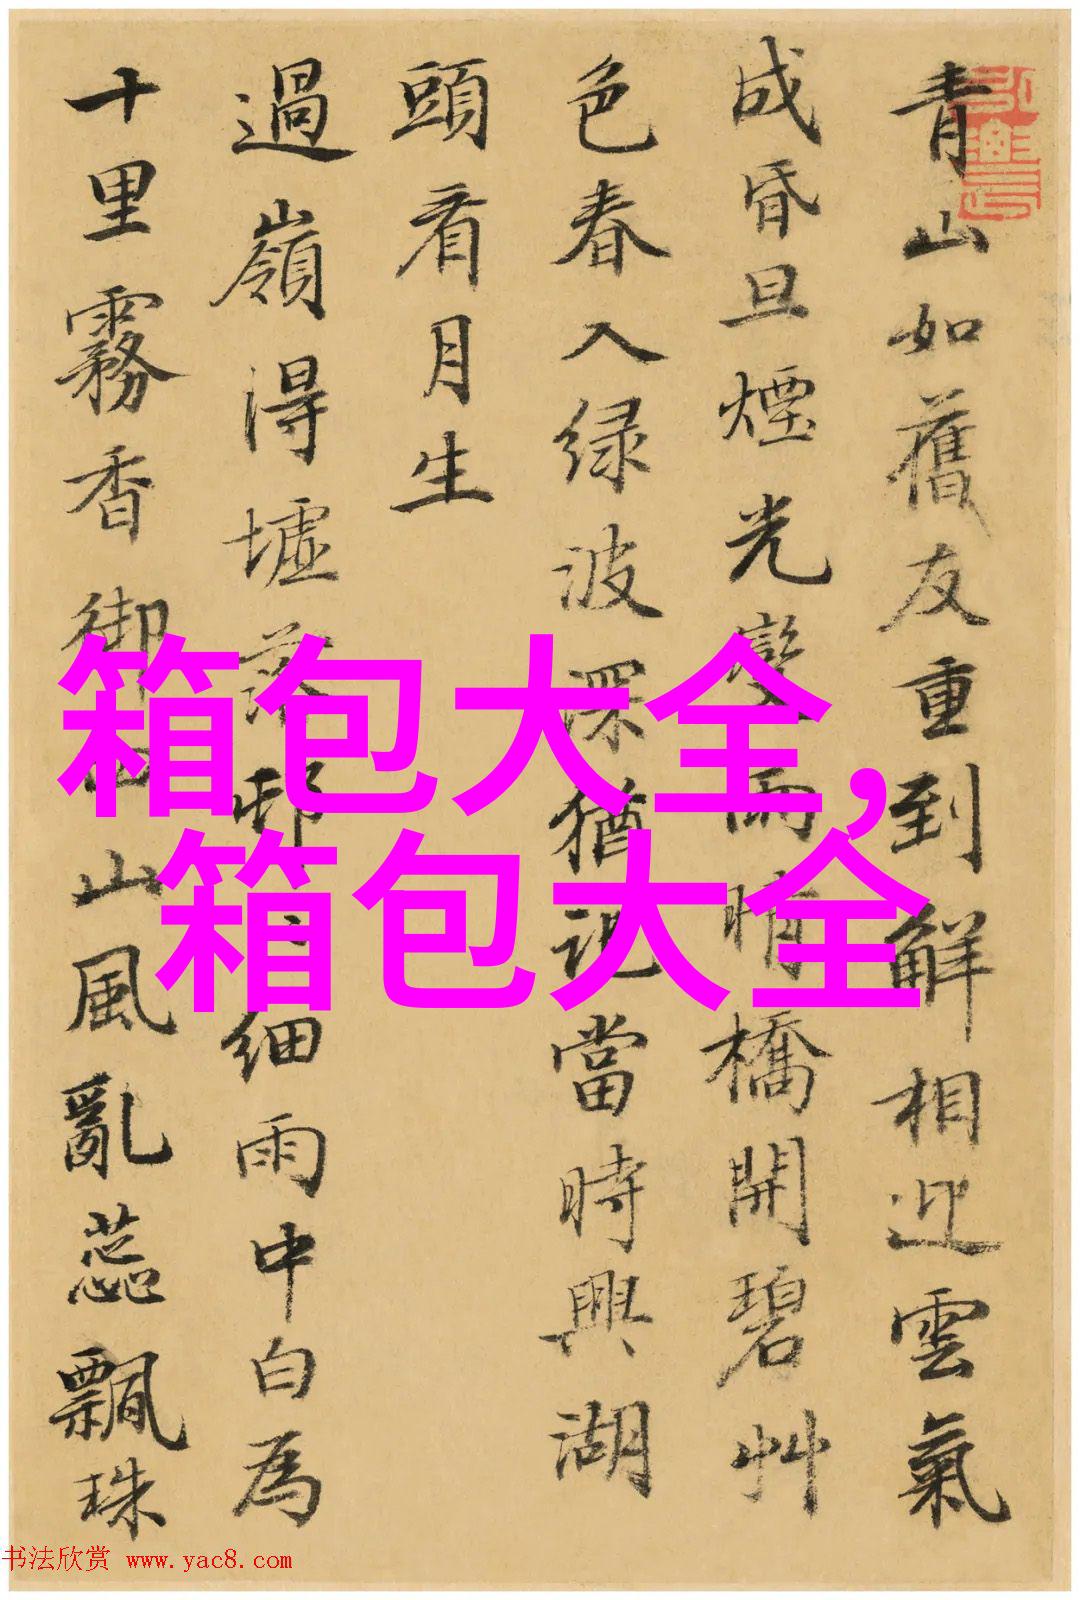 青山如舊友重到解相迎雲氣
成昏旦煙光變雨晴橋開碧艸
色春入绿波深猶記當時興湖
頭看月生
過嶺得墟落邨〻細雨中白為
十里霧香御四山風亂蕊飄珠
箱包大全,
箱包大全
书法欣赏 www.yac8.com